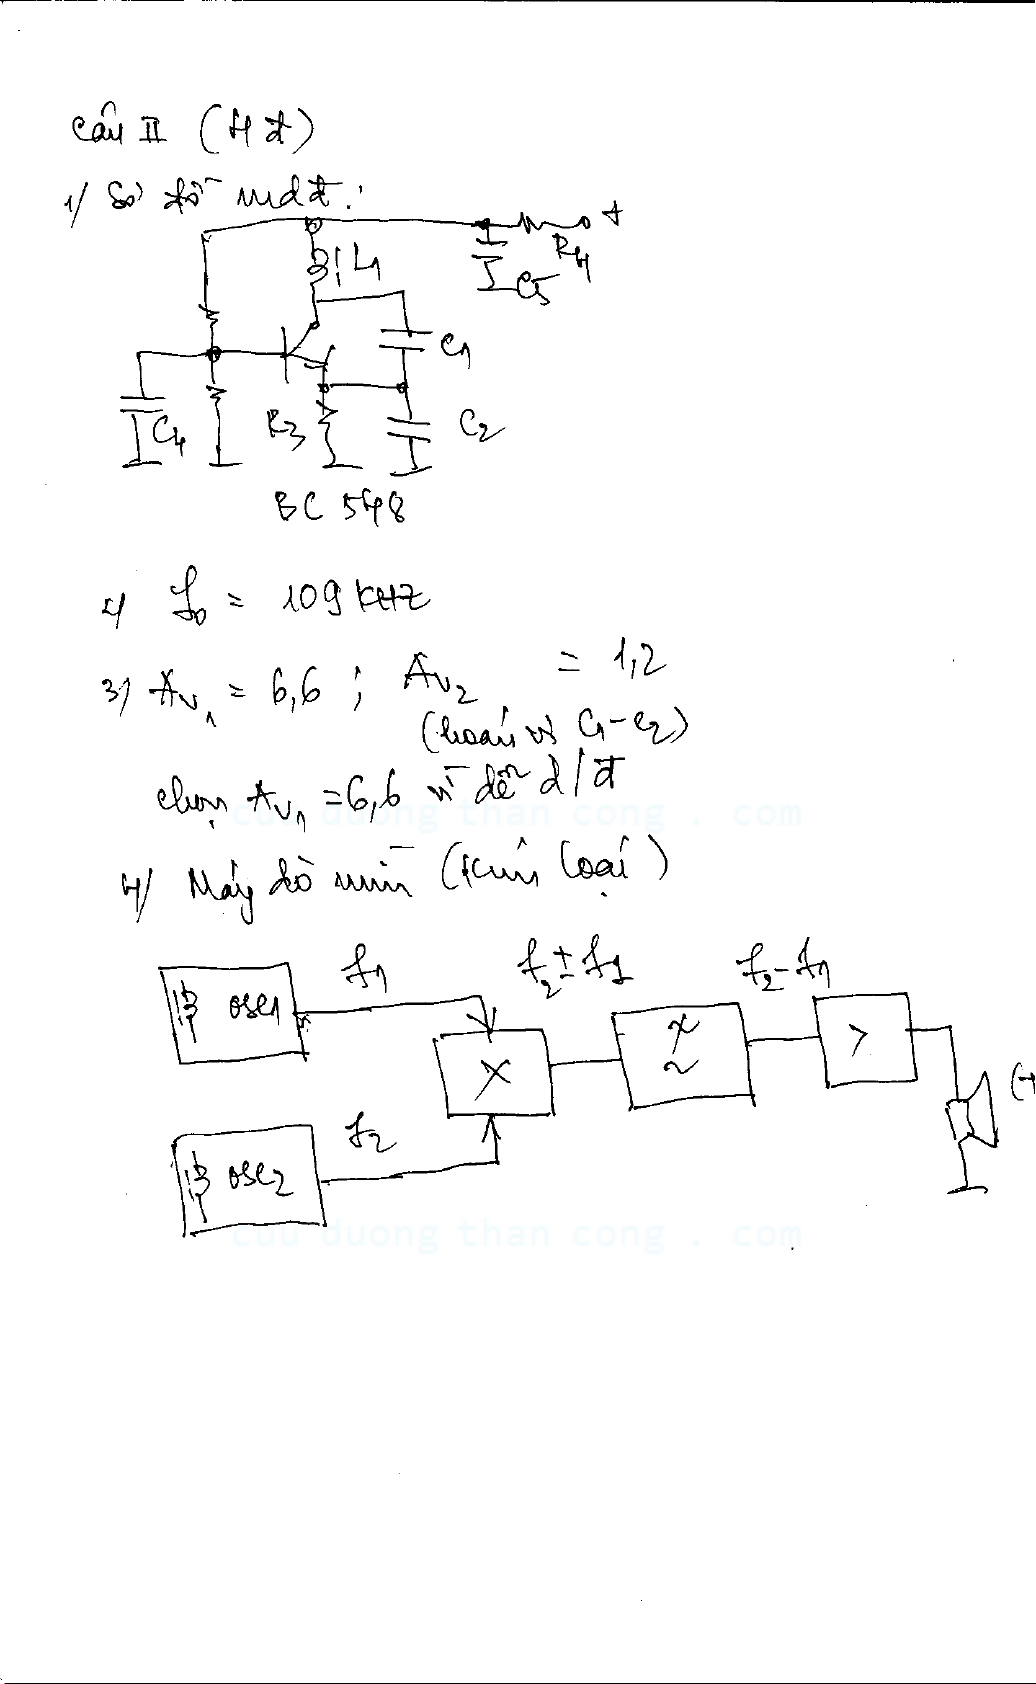 Câu II (4 đ)
1/ Sơ đồ mdđ:
+
R4
L1
C5
C1
C4
R3
C2
BC 548
2/ f0 = 109 KHZ
3/ AV1 = 6,6 ; AV2 = 1,2
(hoán vị C1-C2)
chọn AV1 = 6,6 vì dễ d/đ
cuu duong than cong . com
4/ Máy dò mìn (kim loại)
f1
f2 ± f1
f2 - f1
osc1
X
>
f2
osc2
cuu duong than cong . com